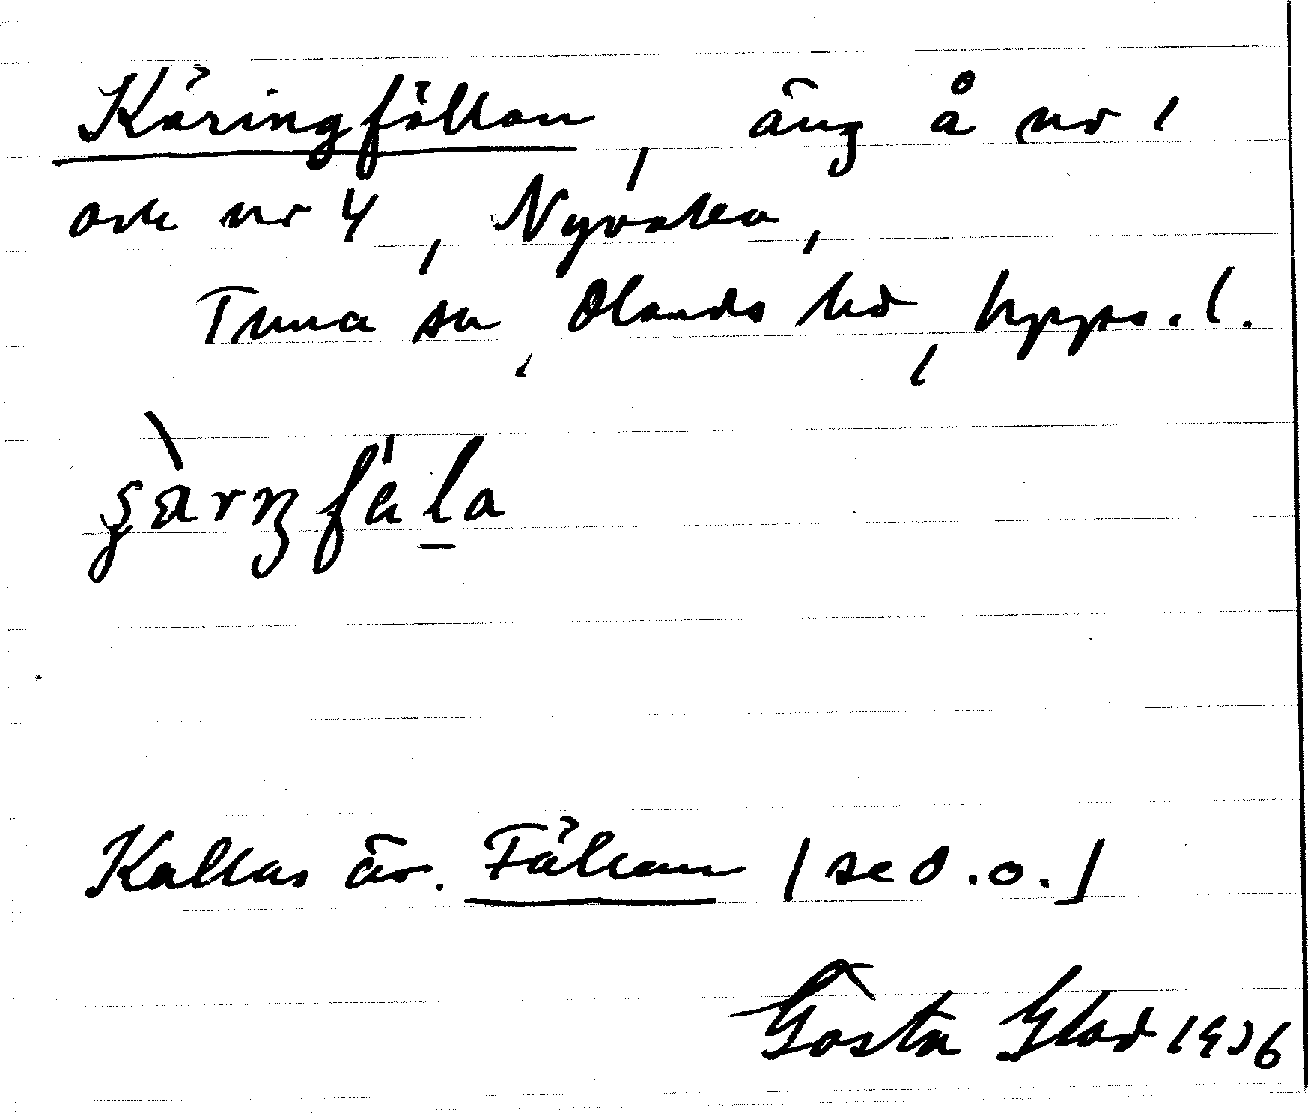 Käringfällan, äng å nr 1
och nr 4, Nyvalla,
Tuna sn, Olands hd, Upps. l.
Kallas äv. Fällan (se d. o.)
Gösta Glad 1936